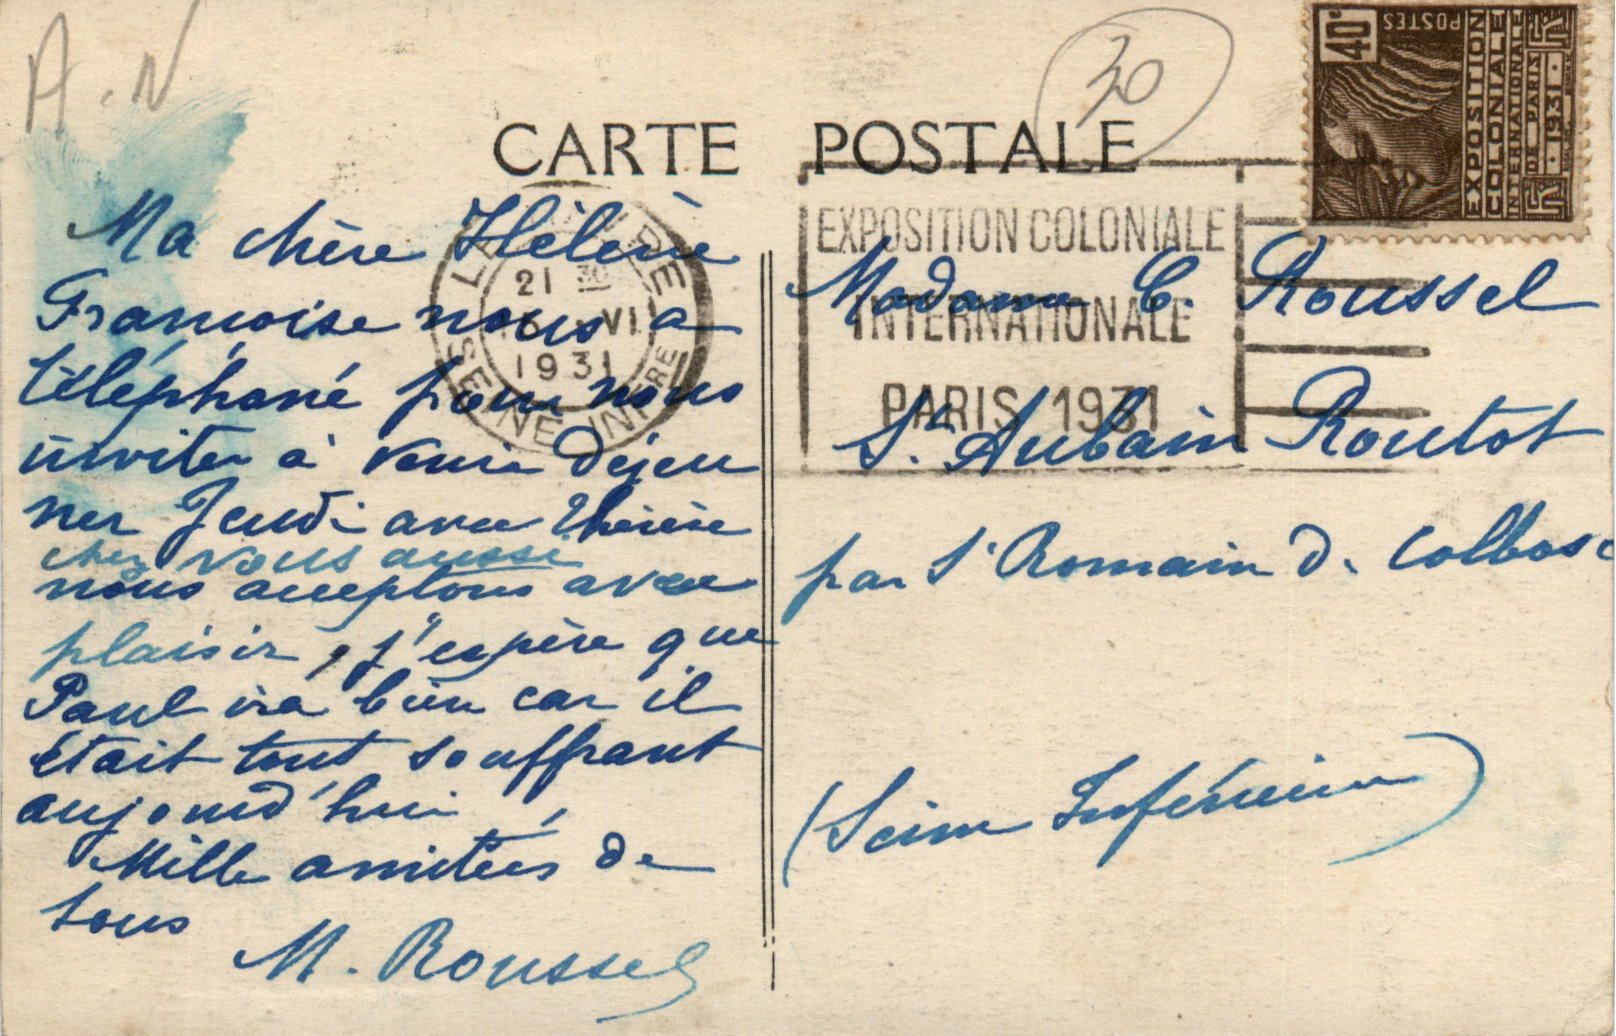 A.N
30
40c
POSTES
EXPOSITION
COLONIALE
INTERNATIONALE
DE PARIS
1931
CARTE POSTALE
21 30
VI
1931
SEINE INFRE
EXPOSITION COLONIALE
INTERNATIONALE
PARIS 1931
Ma chère Hélène
Françoise nous a
téléphoné pour nous
inviter à venir déjeu
ner Jeudi avec Thérèse
chez vous aussi
nous acceptons avec
plaisir, j'espère que
Paul ira bien car il
était tout souffrant
aujourd'hui,
Mille amitiés de
tous
M. Roussel
Madame C. Roussel
St. Aubain Routot
par St Romain d. Colbosc
(Seine Inférieure)